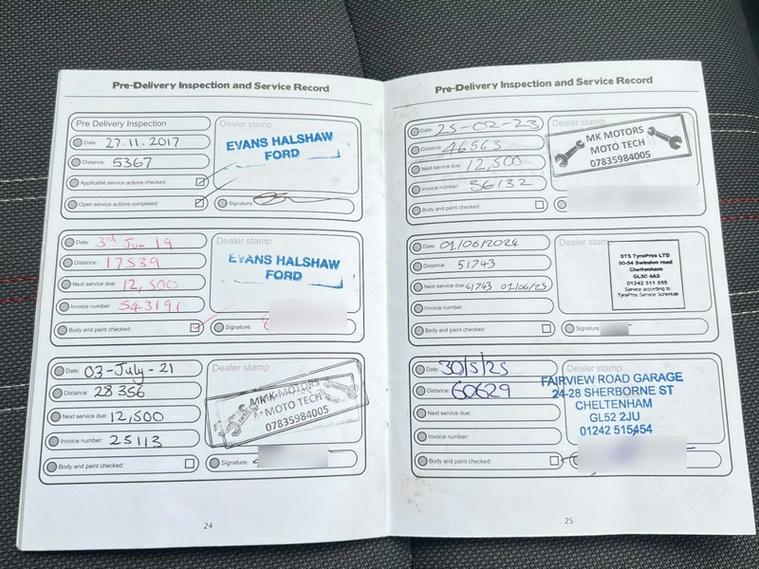 Pre-Delivery Inspection and Service Record
Pre Delivery Inspection
Date: 27.11.2017
Distance: 5367
Applicable service actions checked:
Open service actions completed:
Dealer stamp
EVANS HALSHAW
FORD
Signature:
Date: 3rd Jun 19
Distance: 17539
Next service due: 12,500
Invoice number: 543191
Body and paint checked:
Dealer stamp
EVANS HALSHAW
FORD
Signature:
Date: 03-July-21
Distance: 28356
Next service due: 12,500
Invoice number: 25113
Body and paint checked:
Dealer stamp
MOTORS
MOTO TECH
07835984005
Signature:
24
Pre-Delivery Inspection and Service Record
Date: 25-02-23
Distance: 46563
Next service due: 12,500
Invoice number: 36132
Body and paint checked:
Dealer stamp
MK MOTORS
MOTO TECH
07835984005
Date: 01/06/2024
Distance: 51743
Next service due: 61743 01/06/25
Invoice number:
Body and paint checked:
Dealer stamp
STS TyrePros LTD
50-54 Swindon road
Cheltenham
GL50 4AS
01242 511 555
Service according to
TyrePros Service Schedule
Signature:
Date: 30/5/25
Distance: 60629
Next service due:
Invoice number:
Body and paint checked:
Dealer stamp
FAIRVIEW ROAD GARAGE
24-28 SHERBORNE ST
CHELTENHAM
GL52 2JU
01242 515454
25